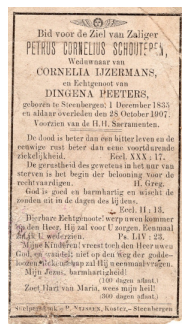 Bid voor de Ziel van Zaliger
PETRUS CORNELIUS SCHOUTEREN,
Weduwnaar van
CORNELIA IJZERMANS,
en Echtgenoot van
DINGENA PEETERS,
geboren te Steenbergen: 1 December 1835
en aldaar overleden 28 October 1907.
Voorzien van de H.H. Sacramenten.
De dood is beter dan een bitter leven en de
eeuwige rust beter dan eene voortdurende
ziekelijkheid. Eccl. XXX: 17.
De gerustheid des gewetens in het uur van
sterven is het begin der belooning voor de
rechtvaardigen. H. Greg.
God is goed en barmhartig en wischt de
zonden uit in de dagen des lijdens.
Eccl. II: 13.
Dierbare Echtgenoote! werp uwen kommer
op den Heer, Hij zal voor U zorgen. Eenmaal
zien wij U wederzien. Ps. LIV: 23.
Mijne Kinderen! vreest toch den Heer uwen
God, en wandelt niet op den weg der godde-
loozen, want op hen zal Hij eenmaal
Mijn Jezus, barmhartigheid!
(100 dagen aflaat)
Zoet Hart van Maria, wees mijn heil!
(300 dagen aflaat)
Koster, Steenbergen.